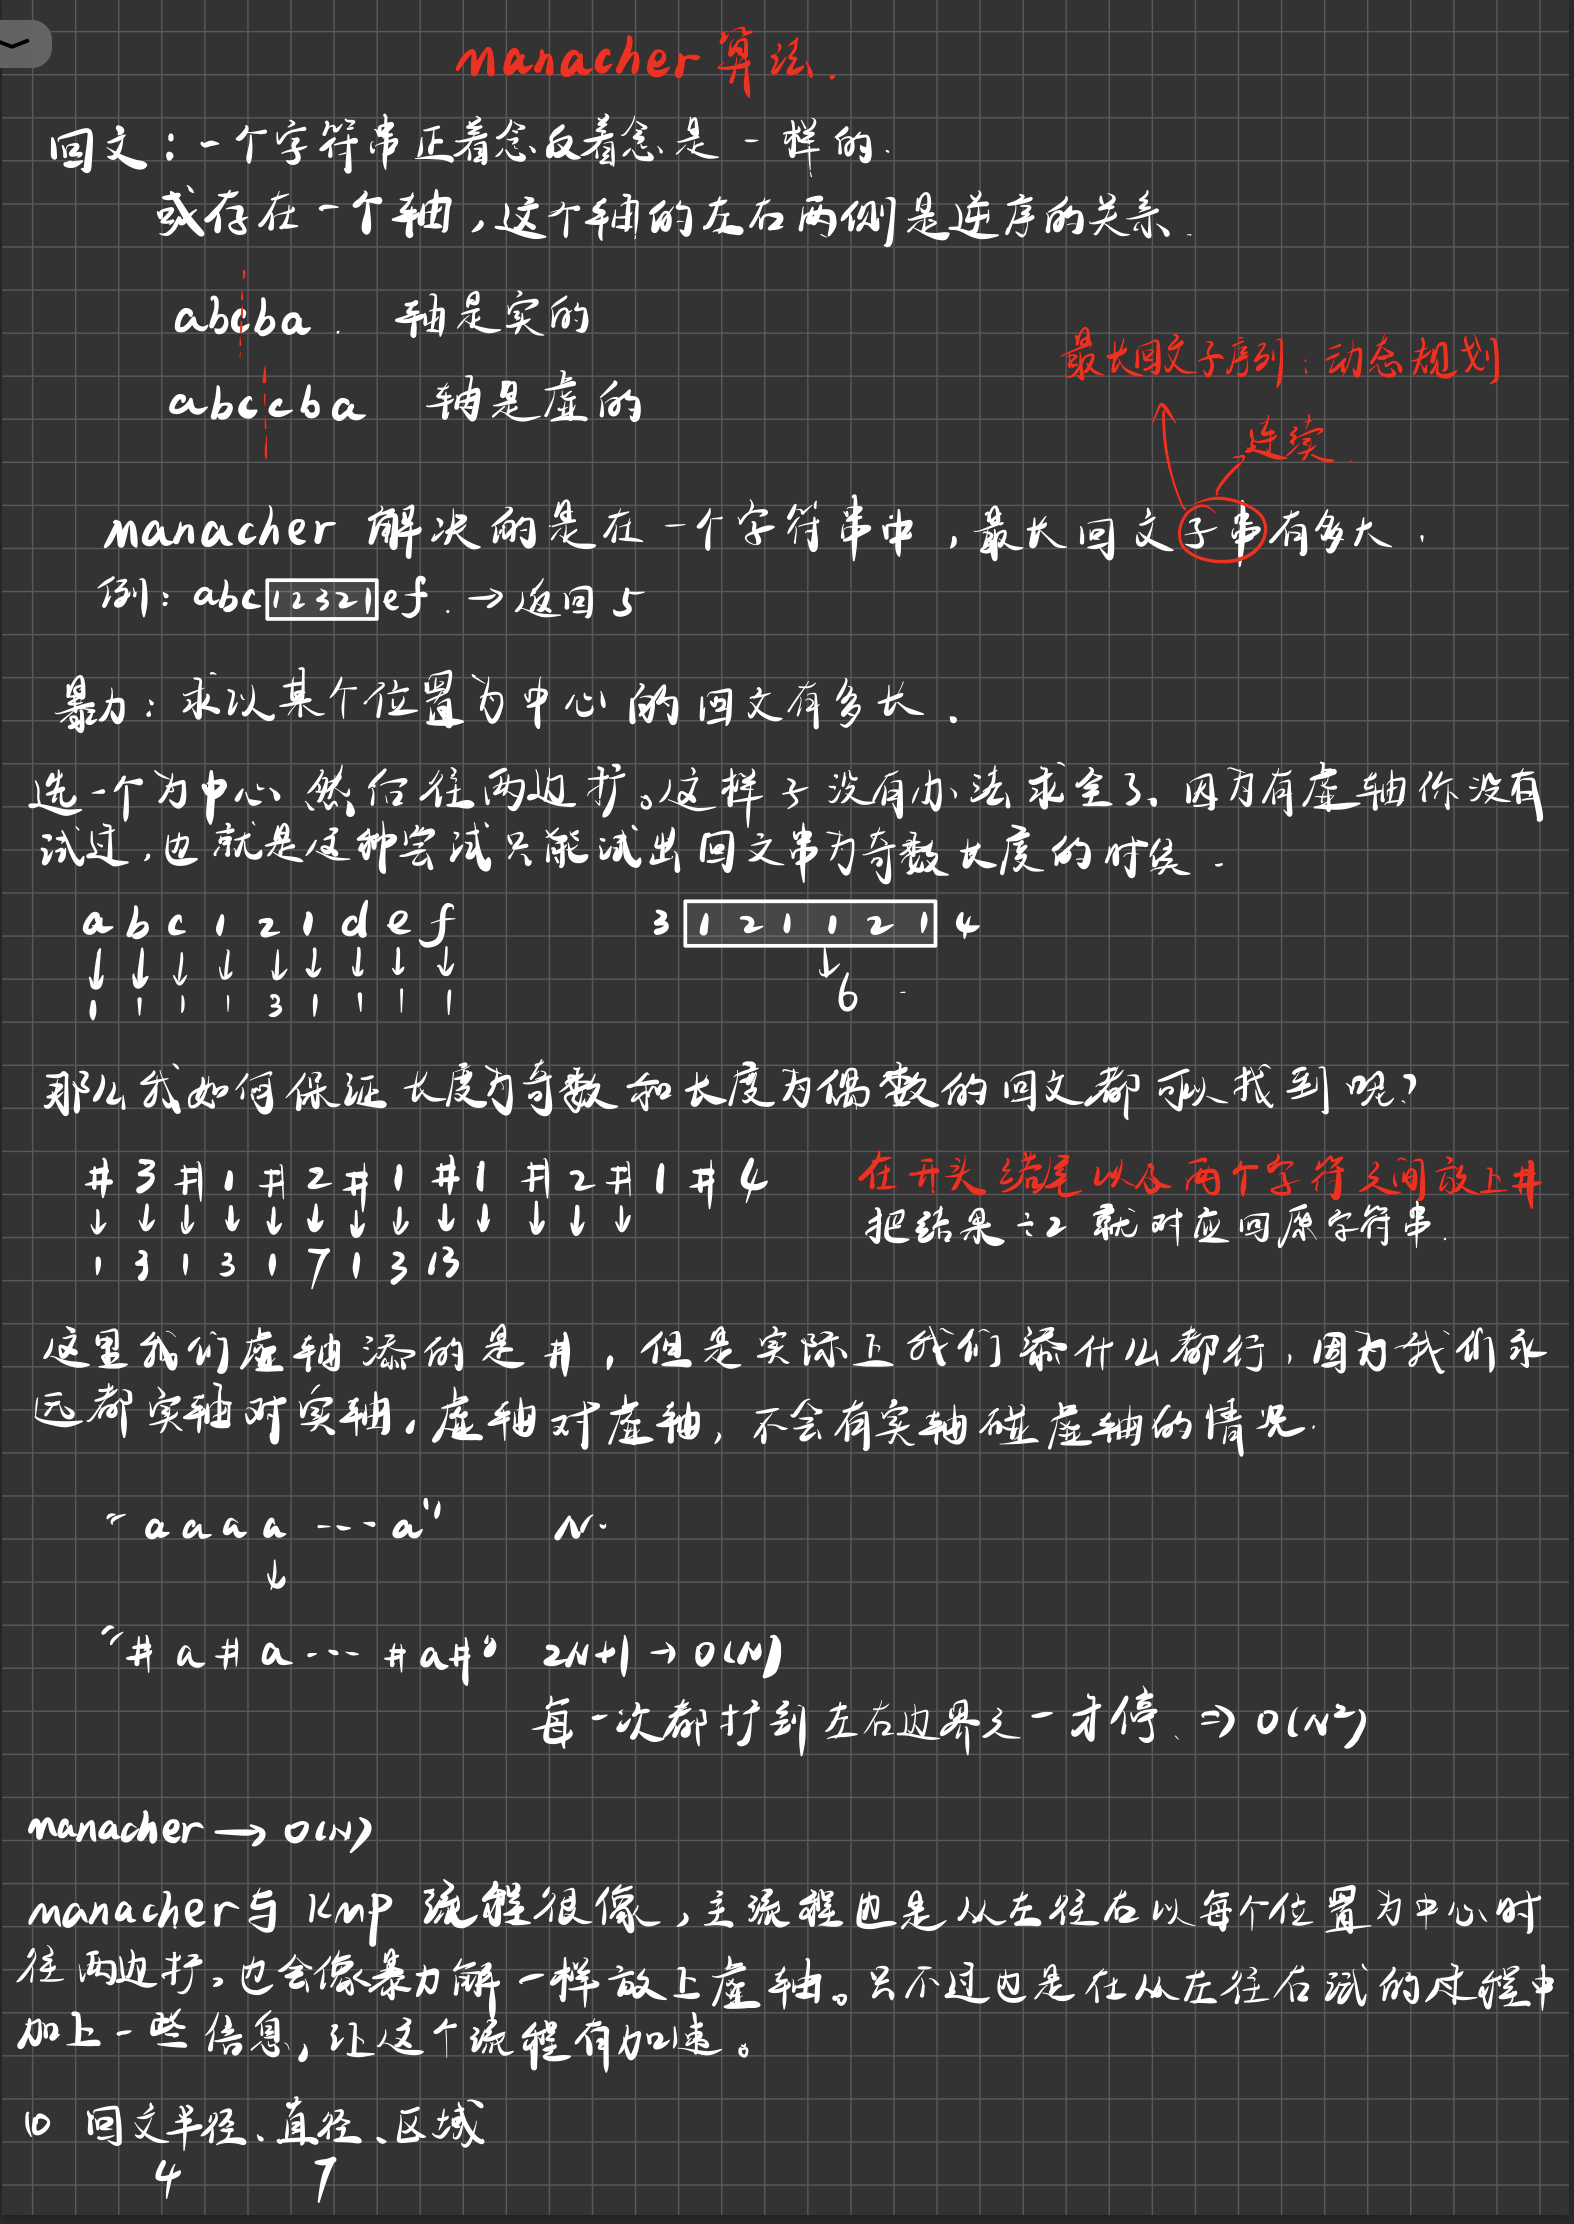 manacher 算法.
回文：一个字符串正着念反着念是一样的.
或存在一个轴，这个轴的左右两侧是逆序的关系.
abcba. 轴是实的
最长回文子序列：动态规划
abccba 轴是虚的
连续.
manacher 解决的是在一个字符串中，最长回文子串有多大.
例：abc12321ef. →返回 5
暴力：求以某个位置为中心的回文有多长.
选一个为中心然后往两边扩。这样子没有办法求全了、因为有虚轴你没有
试过，也就是这种尝试只能试出回文串为奇数长度的时候.
a b c 1 2 1 d e f 3 1 2 1 1 2 1 4
↓ ↓ ↓ ↓ ↓ ↓ ↓ ↓ ↓ ↓
1 1 1 1 3 1 1 1 1 6
那么我如何保证长度为奇数和长度为偶数的回文都可以找到呢？
# 3 # 1 # 2 # 1 # 1 # 2 # 1 # 4 在开头结尾以及两个字符之间放上#
↓ ↓ ↓ ↓ ↓ ↓ ↓ ↓ ↓ ↓ ↓ ↓ ↓ 把结果÷2 就对应回原字符串.
1 3 1 3 1 7 1 3 13
这里我们虚轴添的是#，但是实际上我们添什么都行，因为我们永
远都实轴对实轴，虚轴对虚轴，不会有实轴碰虚轴的情况.
"a a a a ---- a" N.
↓
"# a # a --- # a #" 2N+1 → O(N)
每一次都扩到左右边界之一才停. ⇒ O(N²)
manacher → O(N)
manacher与 Kmp 流程很像，主流程也是从左往右以每个位置为中心时
往两边扩，也会像暴力解一样放上虚轴。只不过也是在从左往右试的过程中
加上一些信息，让这个流程有加速。
(1) 回文半径、直径、区域
4 7